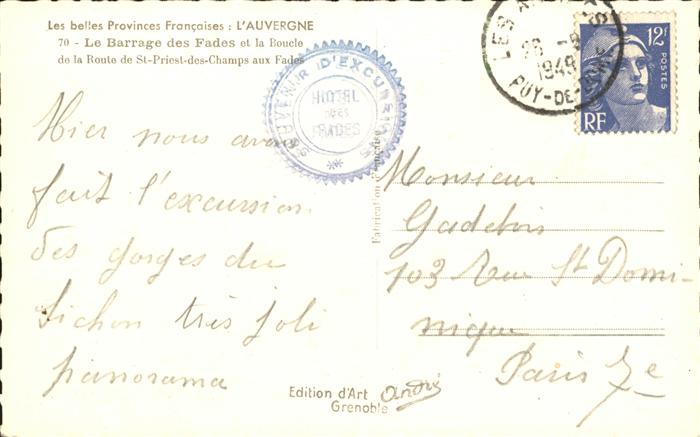 Les belles Provinces Françaises : L'AUVERGNE
70 - Le Barrage des Fades et la Boucle
de la Route de St-Priest-des-Champs aux Fades
SOUVENIR D'EXCURSIONS
HOTEL
DES
FADES
LES
1949
PUY-DE-DOME
12F
POSTES
RF
Hier nous avons
fait l'excursion
des gorges du
Sichon très joli
panorama
Fabrication Française
Monsieur
Gadebois
103 Rue St Domi-
nique
Paris 7e
Edition d'Art André
Grenoble